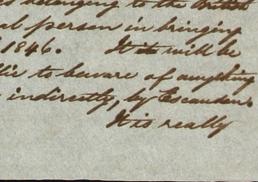 belonging to the British
al person in bringing
1846. It is will be
lic to beware of anything
indirectly, by Escandon.
It is really